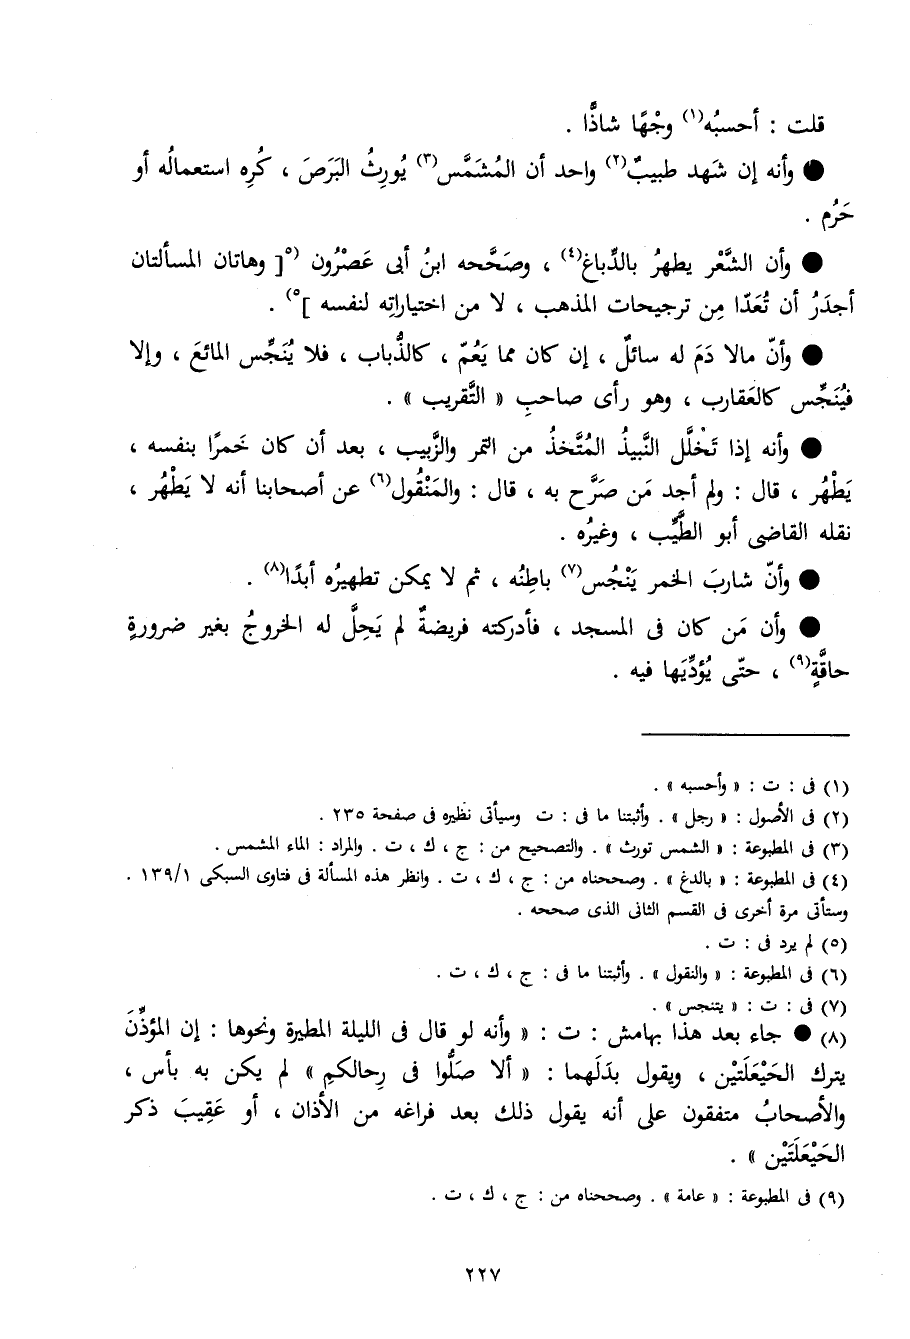 قلت : أحسبُه(١) وجْهًا شاذًّا .
● وأنه إن شَهد طبيبٌ(٢) واحد أن المُشَمَّس(٣) يُورِثُ البَرَصَ ، كُرِه استعمالُه أو
حَرُم .
● وأن الشَّعْر يطهرُ بالدِّباغ(٤) ، وصَحَّحه ابنُ أبى عَصْرُون (٥[ وهاتان المسألتان
أجدَرُ أن تُعَدّا مِن ترجيحات المذهب ، لا من اختياراتِه لنفسه ]٥) .
● وأنّ مالا دَمَ له سائلٌ ، إن كان مما يَعُمّ ، كالذُّباب ، فلا يُنَجِّس المائعَ ، وإلا
فيُنَجِّس كالعَقارب ، وهو رأى صاحبِ « التَّقريب » .
● وأنه إذا تَخْلَّل النَّبيذُ المُتَّخذُ من التمر والزَّبيب ، بعد أن كان خَمرًا بنفسه ،
يَطْهُر ، قال : ولم أجد مَن صَرَّح به ، قال : والمَنْقُول(٦) عن أصحابنا أنه لا يَطْهُر ،
نقله القاضى أبو الطَّيِّب ، وغيرُه .
● وأنّ شاربَ الخمر يَنْجُس(٧) باطِنُه ، ثم لا يمكن تطهيرُه أبدًا(٨) .
● وأن مَن كان فى المسجد ، فأدركته فريضةٌ لم يَحِلَّ له الخروجُ بغير ضرورةٍ
حاقَّةٍ(٩) ، حتّى يُؤدِّيَها فيه .
(١) فى : ت : « وأحسبه » .
(٢) فى الأصول : « رجل » . وأثبتنا ما فى : ت وسيأتى نظيره فى صفحة ٢٣٥ .
(٣) فى المطبوعة : « الشمس تورث » . والتصحيح من : ج ، ك ، ت . والمراد : الماء المشمس .
(٤) فى المطبوعة : « بالدغ » . وصححناه من : ج ، ك ، ت . وانظر هذه المسألة فى فتاوى السبكى ١٣٩/١ .
وستأتى مرة أخرى فى القسم الثانى الذى صححه .
(٥) لم يرد فى : ت .
(٦) فى المطبوعة : « والنقول » . وأثبتنا ما فى : ج ، ك ، ت .
(٧) فى : ت : « يتنجس » .
(٨) ● جاء بعد هذا بهامش : ت : « وأنه لو قال فى الليلة المطيرة ونحوها : إن المؤذِّنَ
يترك الحَيْعَلَتَيْن ، ويقول بدَلَهما : « ألا صَلُّوا فى رِحالكم » لم يكن به بأس ،
والأصحابُ متفقون على أنه يقول ذلك بعد فراغه من الأذان ، أو عَقِيبَ ذكر
الحَيْعَلَتَيْن » .
(٩) فى المطبوعة : « عامة » . وصححناه من : ج ، ك ، ت .
٢٢٧